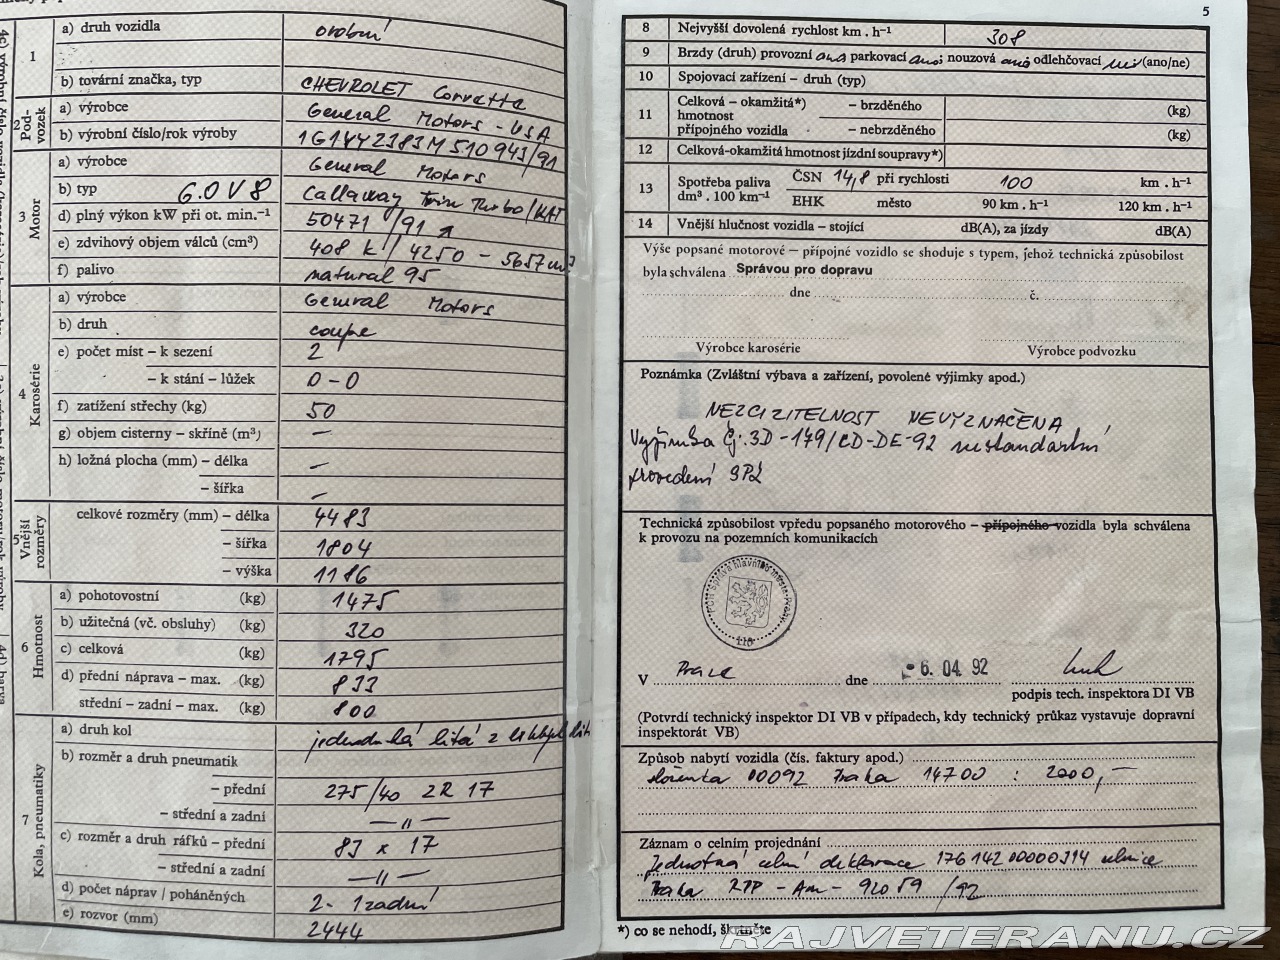 5
1 a) druh vozidla osobní
b) tovární značka, typ CHEVROLET Corvette
2 Pod-vozek a) výrobce General Motors - USA
b) výrobní číslo/rok výroby
3 Motor a) výrobce General Motors
b) typ 6.0 V8 Callaway Twin Turbo/KAT
d) plný výkon kW při ot. min.⁻¹ 50471 /91
e) zdvihový objem válců (cm³) 408 k / 4250 - 5657 cm³
f) palivo natural 95
4 Karosérie a) výrobce General Motors
b) druh coupe
e) počet míst – k sezení 2
– k stání – lůžek 0 - 0
f) zatížení střechy (kg) 50
g) objem cisterny – skříně (m³) —
h) ložná plocha (mm) – délka —
– šířka —
5 Vnější rozměry celkové rozměry (mm) – délka 4483
– šířka 1804
– výška 1186
6 Hmotnost a) pohotovostní (kg) 1475
b) užitečná (vč. obsluhy) (kg) 320
c) celková (kg) 1795
d) přední náprava – max. (kg) 833
střední – zadní – max. (kg) 800
7 Kola, pneumatiky a) druh kol jednoduchá litá z
b) rozměr a druh pneumatik
– přední 275/40 ZR 17
– střední a zadní — „ —
c) rozměr a druh ráfků – přední 8J x 17
– střední a zadní — „ —
d) počet náprav / poháněných 2 - 1 zadní
e) rozvor (mm) 2444
8 Nejvyšší dovolená rychlost km . h⁻¹ 308
9 Brzdy (druh) provozní ano parkovací ano; nouzová ano odlehčovací (ano/ne)
10 Spojovací zařízení – druh (typ)
11 Celková – okamžitá*) – brzděného (kg)
hmotnost
přípojného vozidla – nebrzděného (kg)
12 Celková-okamžitá hmotnost jízdní soupravy*)
13 Spotřeba paliva ČSN 14,8 při rychlosti 100 km . h⁻¹
dm³ . 100 km⁻¹ EHK město 90 km . h⁻¹ 120 km . h⁻¹
14 Vnější hlučnost vozidla – stojící dB(A), za jízdy dB(A)
Výše popsané motorové – přípojné vozidlo se shoduje s typem, jehož technická způsobilost
byla schválena Správou pro dopravu
dne č.
Výrobce karosérie Výrobce podvozku
Poznámka (Zvláštní výbava a zařízení, povolené výjimky apod.)
NEZCIZITELNOST NEVYZNAČENA
Výjimka čj. 3D-179/CD-DE-92 nestandartní
provedení SPZ
Technická způsobilost vpředu popsaného motorového – přípojného vozidla byla schválena
k provozu na pozemních komunikacích
V Praze dne 6. 04. 92
podpis tech. inspektora DI VB
(Potvrdí technický inspektor DI VB v případech, kdy technický průkaz vystavuje dopravní
inspektorát VB)
Způsob nabytí vozidla (čís. faktury apod.)
složenka 00092 Praha 14700 : 2000,—
Záznam o celním projednání
Jednotná celní deklarace 17614200000314 celnice
Praha
*) co se nehodí, škrtněte
RAJVETERANU.CZ